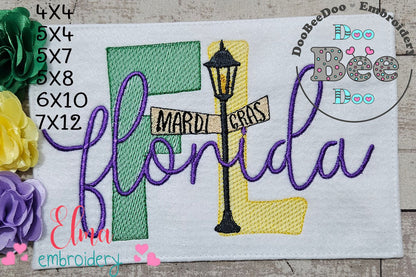 4X4
5X4
5X7
5X8
6X10
7X12
DooBeeDoo - Embroidery
Doo
Bee
Doo
FL
MARDI GRAS
florida
Elma
embroidery